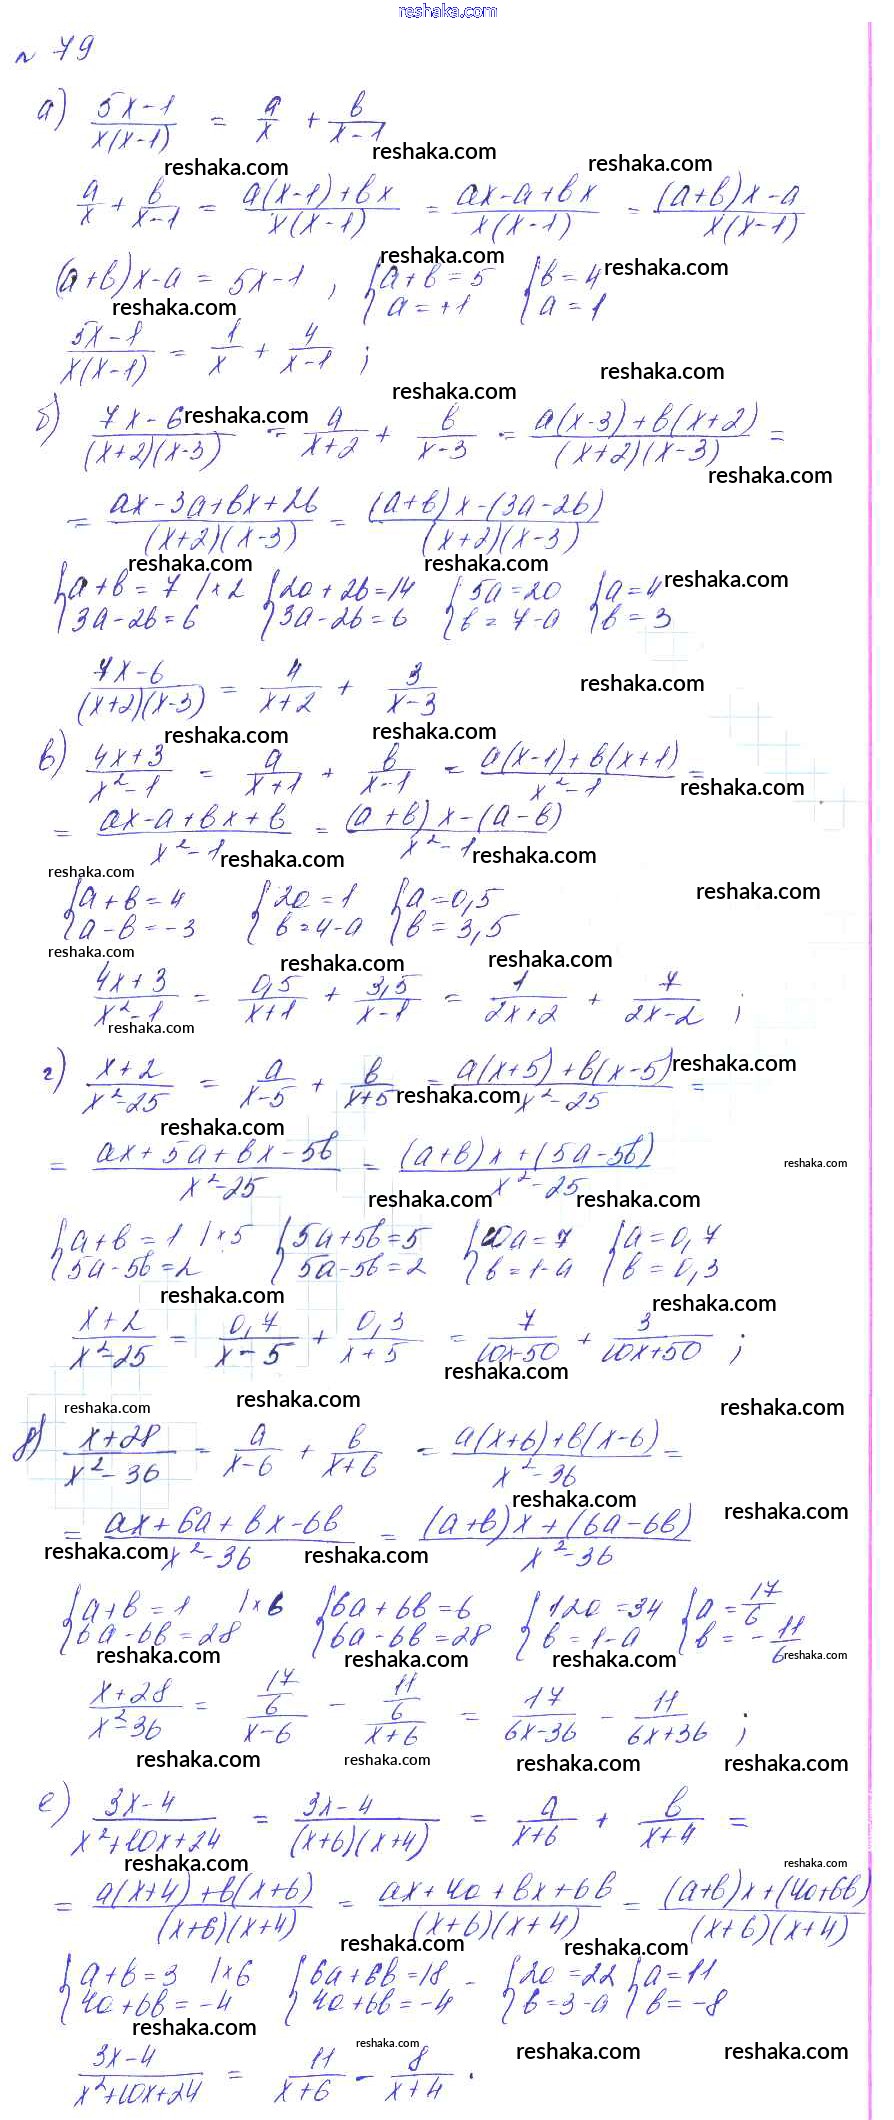 reshaka.com
№ 79
а) (5x-1)/(x(x-1)) = a/x + b/(x-1)
reshaka.com reshaka.com reshaka.com
a/x + b/(x-1) = (a(x-1)+bx)/(x(x-1)) = (ax-a+bx)/(x(x-1)) = ((a+b)x-a)/(x(x-1))
reshaka.com reshaka.com
(a+b)x-a = 5x-1 ; { a+b=5 { b=4
a=+1 a=1
reshaka.com
(5x-1)/(x(x-1)) = 1/x + 4/(x-1) ;
reshaka.com reshaka.com
б) (7x-6)/((x+2)(x-3)) = a/(x+2) + b/(x-3) = (a(x-3)+b(x+2))/((x+2)(x-3)) =
reshaka.com reshaka.com
= (ax-3a+bx+2b)/((x+2)(x-3)) = ((a+b)x-(3a-2b))/((x+2)(x-3))
reshaka.com reshaka.com reshaka.com
{ a+b=7 |×2 { 2a+2b=14 { 5a=20 { a=4
3a-2b=6 3a-2b=6 b=7-a b=3
(7x-6)/((x+2)(x-3)) = 4/(x+2) + 3/(x-3)
reshaka.com reshaka.com reshaka.com
в) (4x+3)/(x²-1) = a/(x+1) + b/(x-1) = (a(x-1)+b(x+1))/(x²-1) =
reshaka.com
= (ax-a+bx+b)/(x²-1) = ((a+b)x-(a-b))/(x²-1)
reshaka.com reshaka.com reshaka.com reshaka.com
{ a+b=4 { 2a=1 { a=0,5
a-b=-3 b=4-a b=3,5
reshaka.com reshaka.com reshaka.com
(4x+3)/(x²-1) = 0,5/(x+1) + 3,5/(x-1) = 1/(2x+2) + 7/(2x-2) ;
reshaka.com
г) (x+2)/(x²-25) = a/(x-5) + b/(x+5) = (a(x+5)+b(x-5))/(x²-25) =
reshaka.com reshaka.com reshaka.com
= (ax+5a+bx-5b)/(x²-25) = ((a+b)x+(5a-5b))/(x²-25)
reshaka.com reshaka.com reshaka.com
{ a+b=1 |×5 { 5a+5b=5 { 10a=7 { a=0,7
5a-5b=2 5a-5b=2 b=1-a b=0,3
reshaka.com reshaka.com
(x+2)/(x²-25) = 0,7/(x-5) + 0,3/(x+5) = 7/(10x-50) + 3/(10x+50) ;
reshaka.com
reshaka.com reshaka.com reshaka.com
д) (x+28)/(x²-36) = a/(x-6) + b/(x+6) = (a(x+6)+b(x-6))/(x²-36) =
reshaka.com reshaka.com
= (ax+6a+bx-6b)/(x²-36) = ((a+b)x+(6a-6b))/(x²-36)
reshaka.com reshaka.com
{ a+b=1 |×6 { 6a+6b=6 { 12a=34 { a=17/6
6a-6b=28 6a-6b=28 b=1-a b=-11/6
reshaka.com reshaka.com reshaka.com reshaka.com
(x+28)/(x²-36) = (17/6)/(x-6) - (11/6)/(x+6) = 17/(6x-36) - 11/(6x+36) ;
reshaka.com reshaka.com reshaka.com reshaka.com
е) (3x-4)/(x²+10x+24) = (3x-4)/((x+6)(x+4)) = a/(x+6) + b/(x+4) =
reshaka.com reshaka.com
= (a(x+4)+b(x+6))/((x+6)(x+4)) = (ax+4a+bx+6b)/((x+6)(x+4)) = ((a+b)x+(4a+6b))/((x+6)(x+4))
reshaka.com reshaka.com
{ a+b=3 |×6 { 6a+6b=18 - { 2a=22 { a=11
4a+6b=-4 4a+6b=-4 b=3-a b=-8
reshaka.com reshaka.com reshaka.com reshaka.com
(3x-4)/(x²+10x+24) = 11/(x+6) - 8/(x+4) .